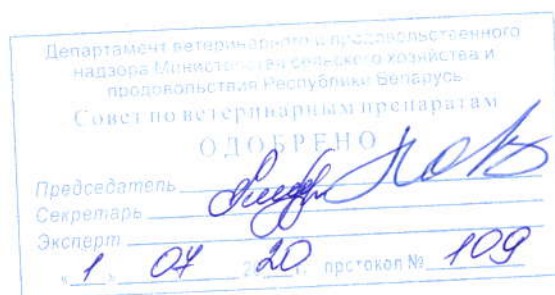 Департамент ветеринарного и продовольственного
надзора Министерства сельского хозяйства и
продовольствия Республики Беларусь
Совет по ветеринарным препаратам
ОДОБРЕНО
Председатель
Секретарь
Эксперт
«1» 07 2020 г. протокол № 109